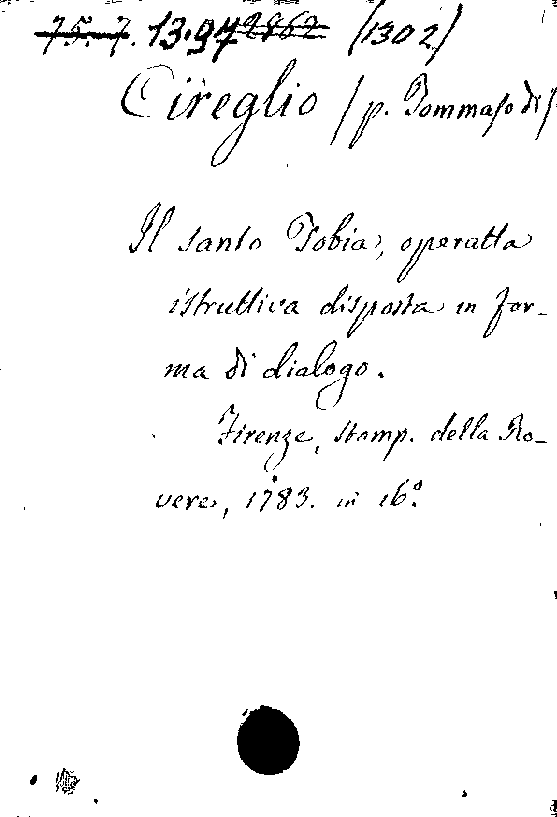 75. 7. 13.97 2862 (1302)
Cireglio (p. Tommaso di)
Il santo Tobia, operatta
istruttiva disposta in for-
ma di dialogo.
Firenze, stamp. della Ro-
vere, 1783. in 16.º